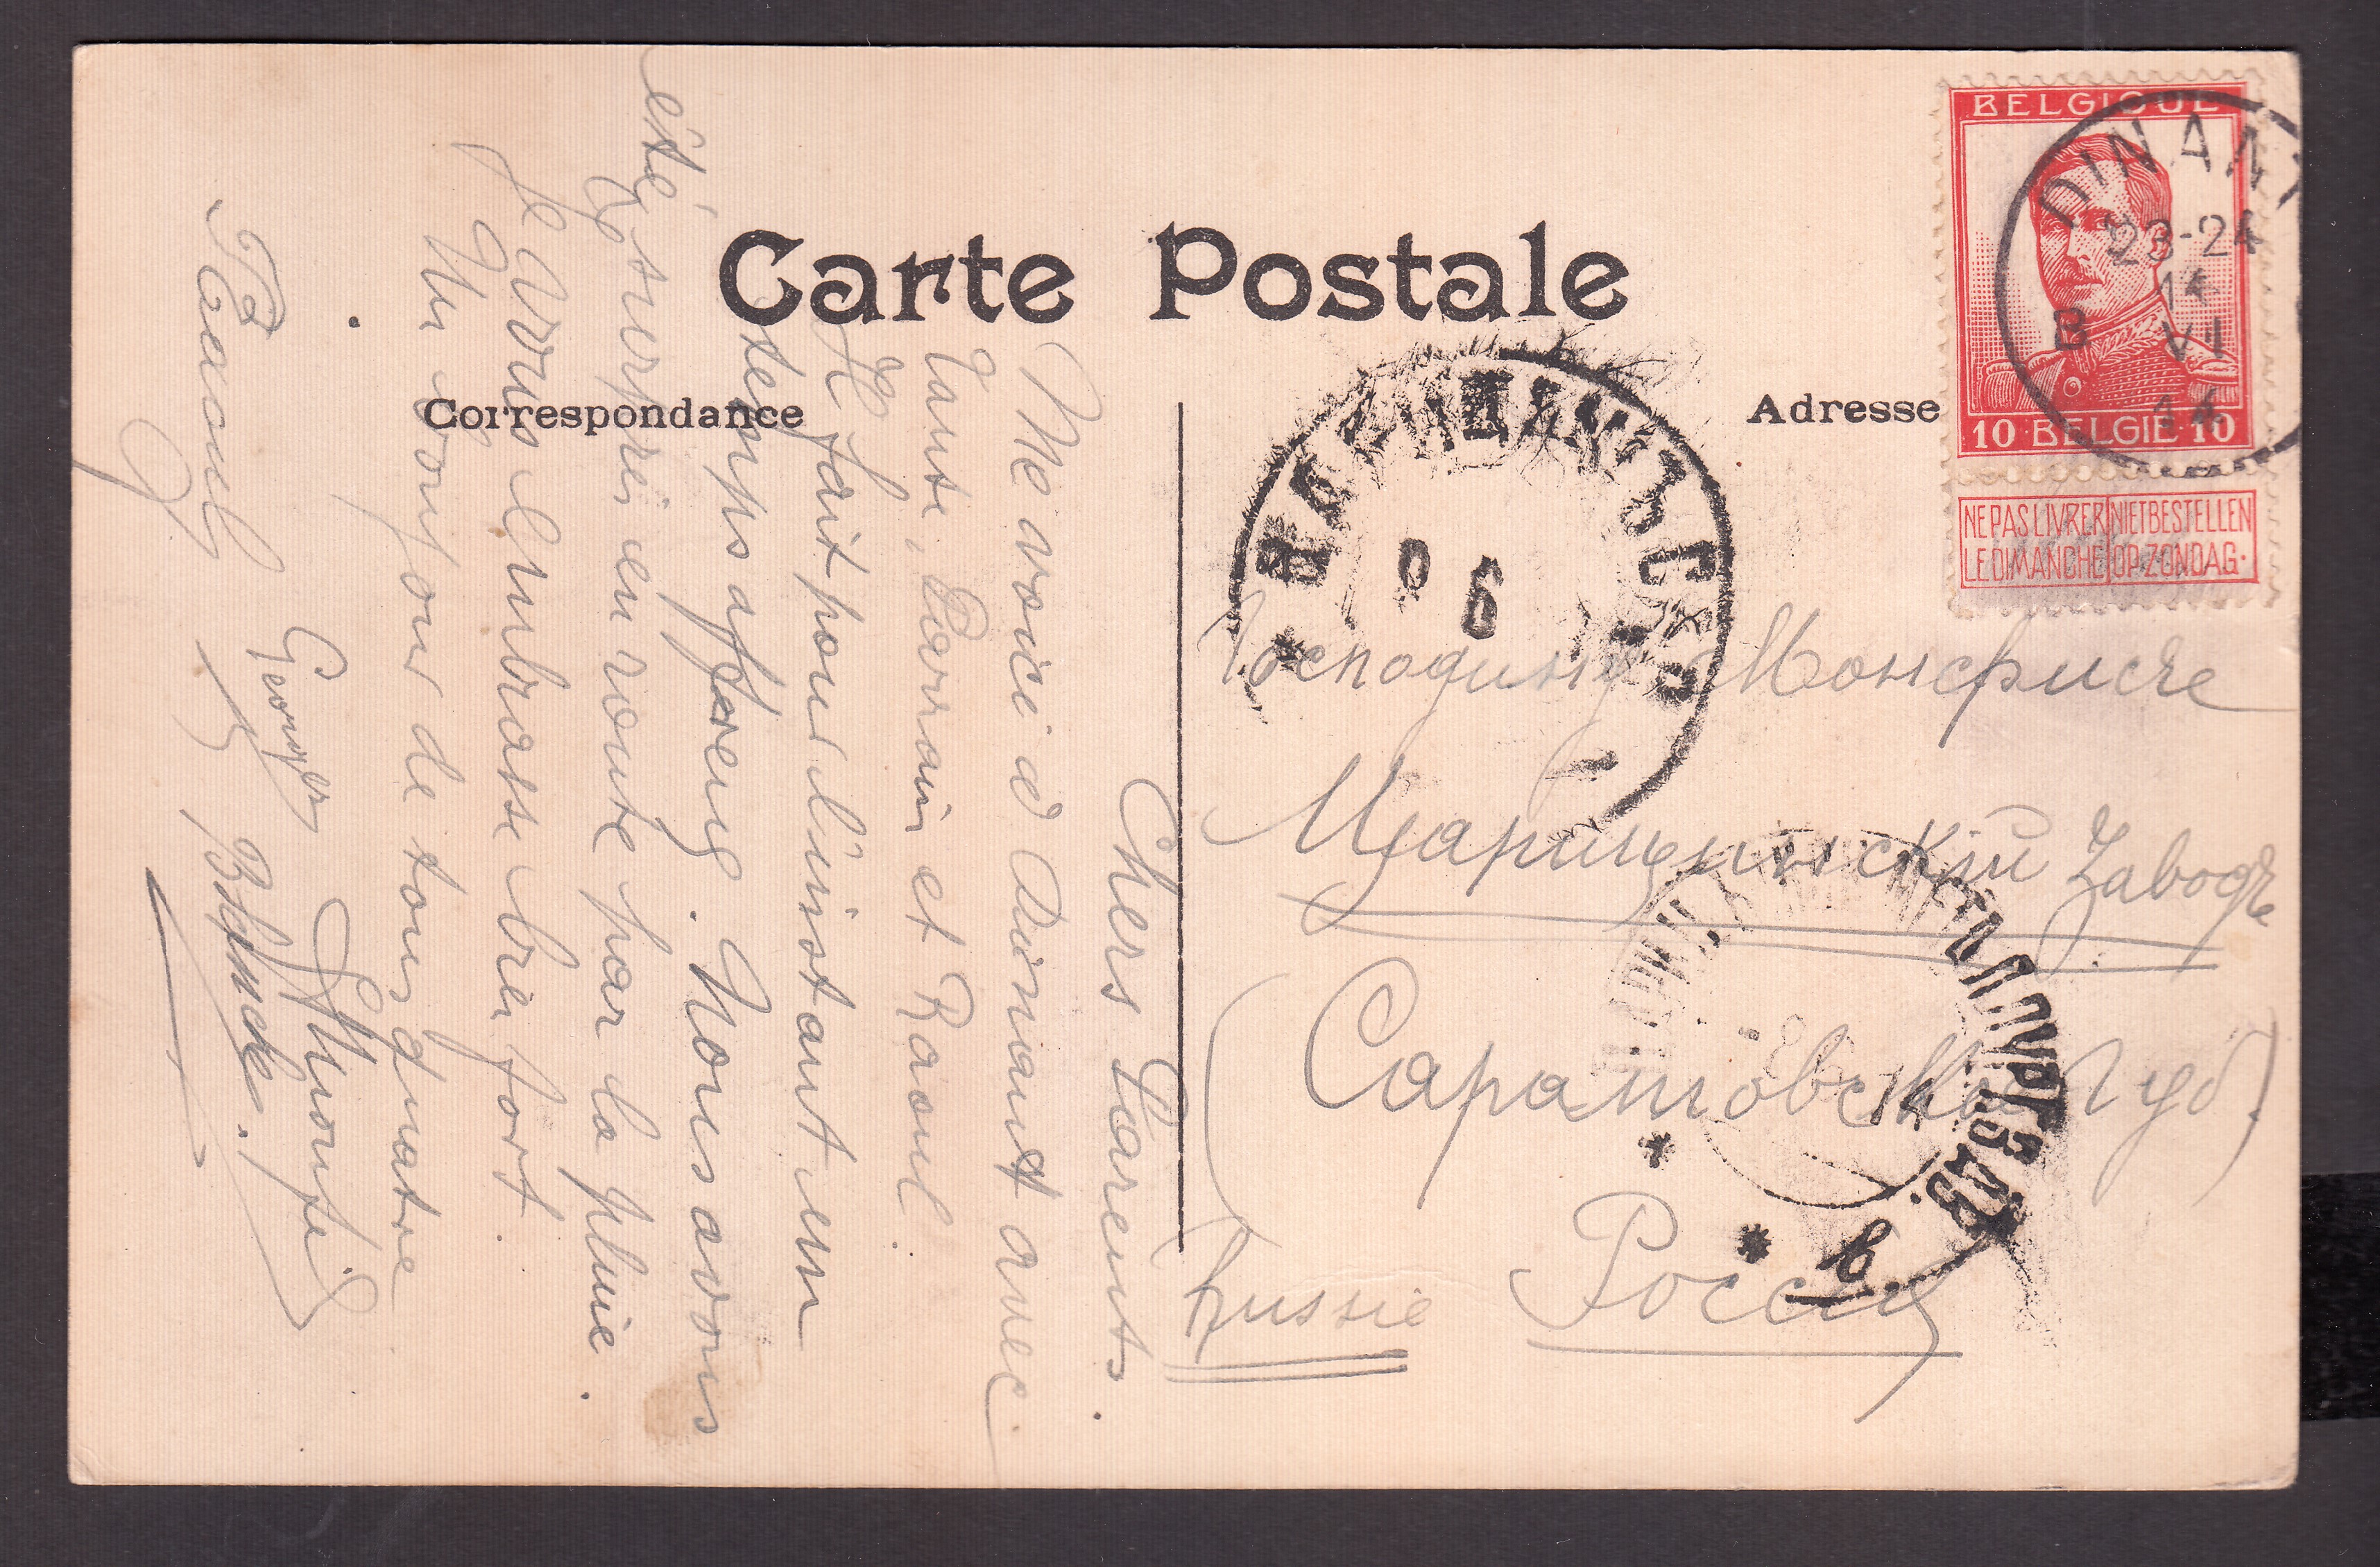 Carte Postale
Correspondance
Adresse
BELGIQUE
10 BELGIE 10
NE PAS LIVRER LE DIMANCHE
NIET BESTELLEN OP ZONDAG.
DINANT
23-24
14
VI
14
B
Chers Parents.
Me voici à Dinant avec
Tante, Parrain et Raoul.
Il fait pour l'instant un
temps affreux. Nous avons
été surpris en route par la pluie.
Je vous embrasse bien fort.
Un bonjour de tous quatre
Georges
Raoul
Господину Монфисъе
Царицынскій Заводъ
(Саратовская Губ.)
Russie Россія
ЦАРИЦЫНЪ